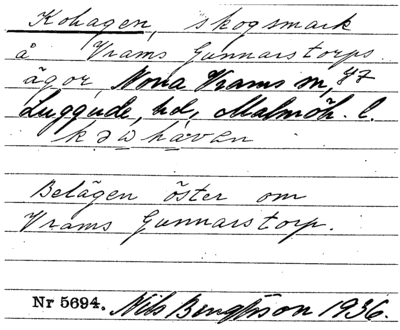 Kohagen, skogsmark
å Vrams Gunnarstorps
ägor, Norra Vrams sn,
Luggude, hd, Malmöh. l.
Belägen öster om
Vrams Gunnarstorp.
Nr 5694. Nils Bengtsson 1936.